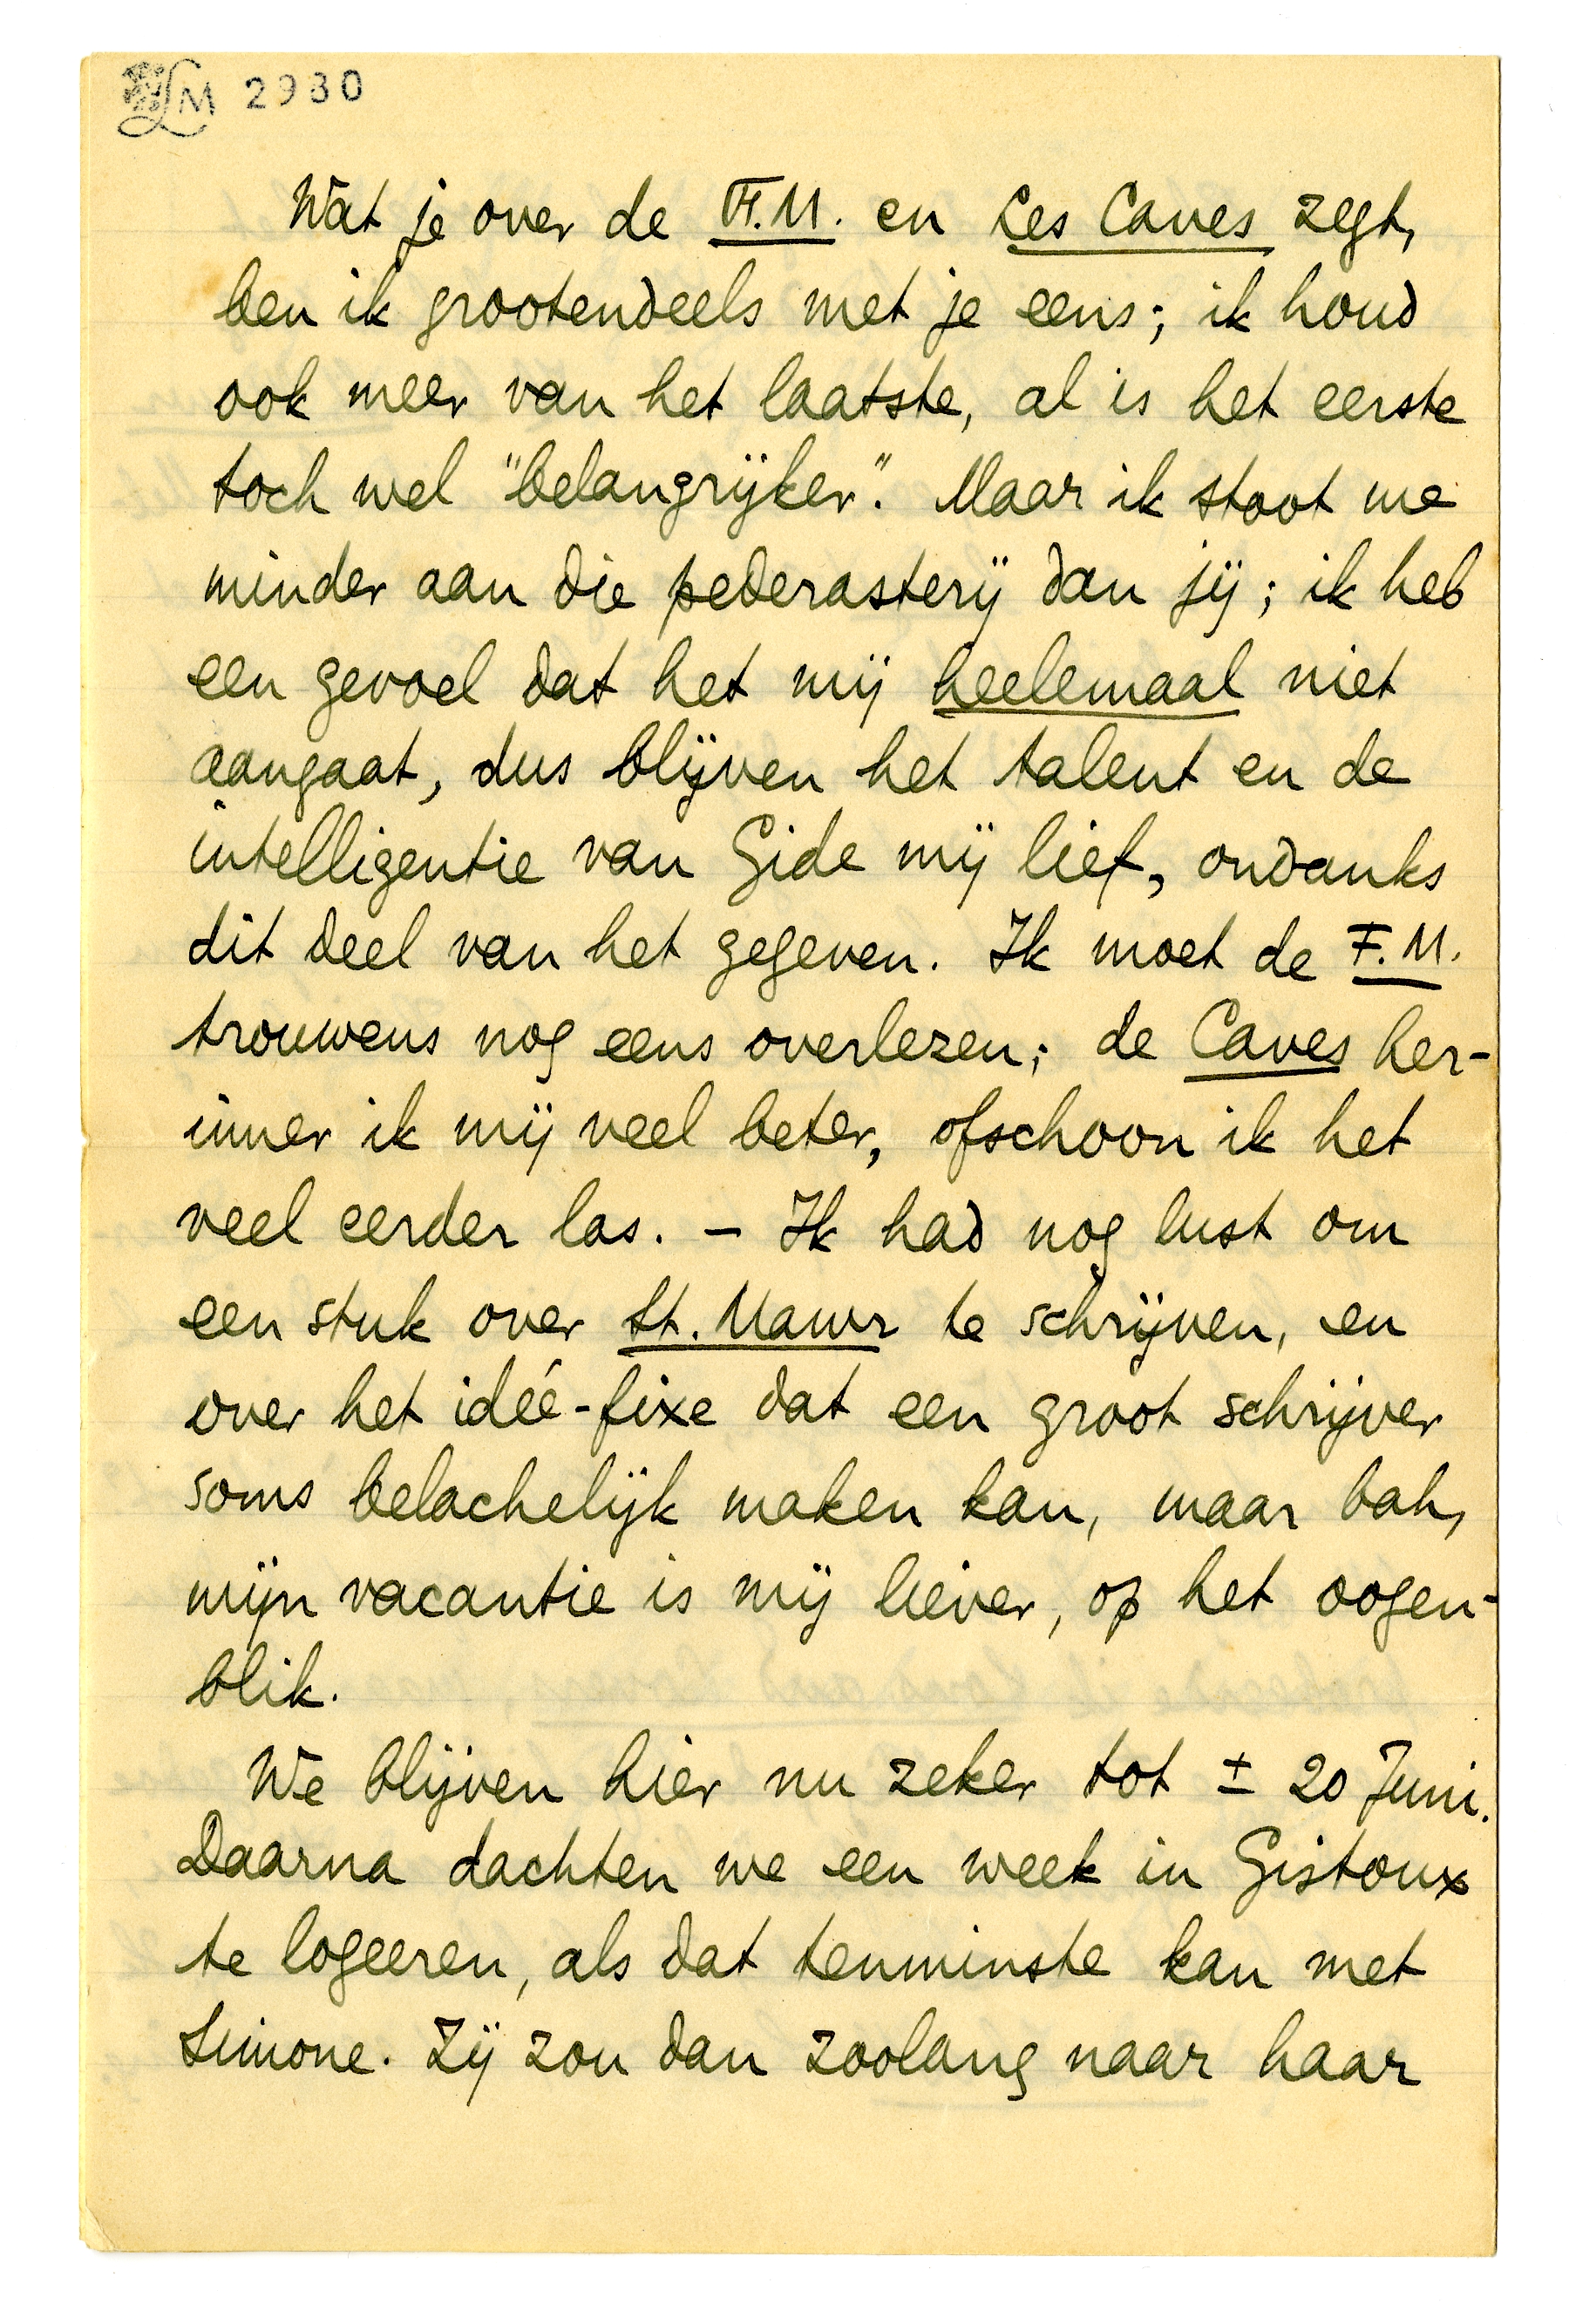 LM 2930
Wat je over de F.M. en Les Caves zegt,
ben ik grootendeels met je eens; ik houd
ook meer van het laatste, al is het eerste
toch wel "belangrijker". Maar ik stoot me
minder aan die pederasterij dan jij; ik heb
een gevoel dat het mij heelemaal niet
aangaat, dus blijven het talent en de
intelligentie van Gide mij lief, ondanks
dit deel van het gegeven. Ik moet de F.M.
trouwens nog eens overlezen; de Caves her-
inner ik mij veel beter, ofschoon ik het
veel eerder las. – Ik had nog lust om
een stuk over St. Mawr te schrijven, en
over het idée-fixe dat een groot schrijver
soms belachelijk maken kan, maar bah,
mijn vacantie is mij liever, op het oogen-
blik.
We blijven hier nu zeker tot ± 20 Juni.
Daarna dachten we een week in Gistoux
te logeeren, als dat tenminste kan met
Simone. Zij zou dan zoolang naar haar